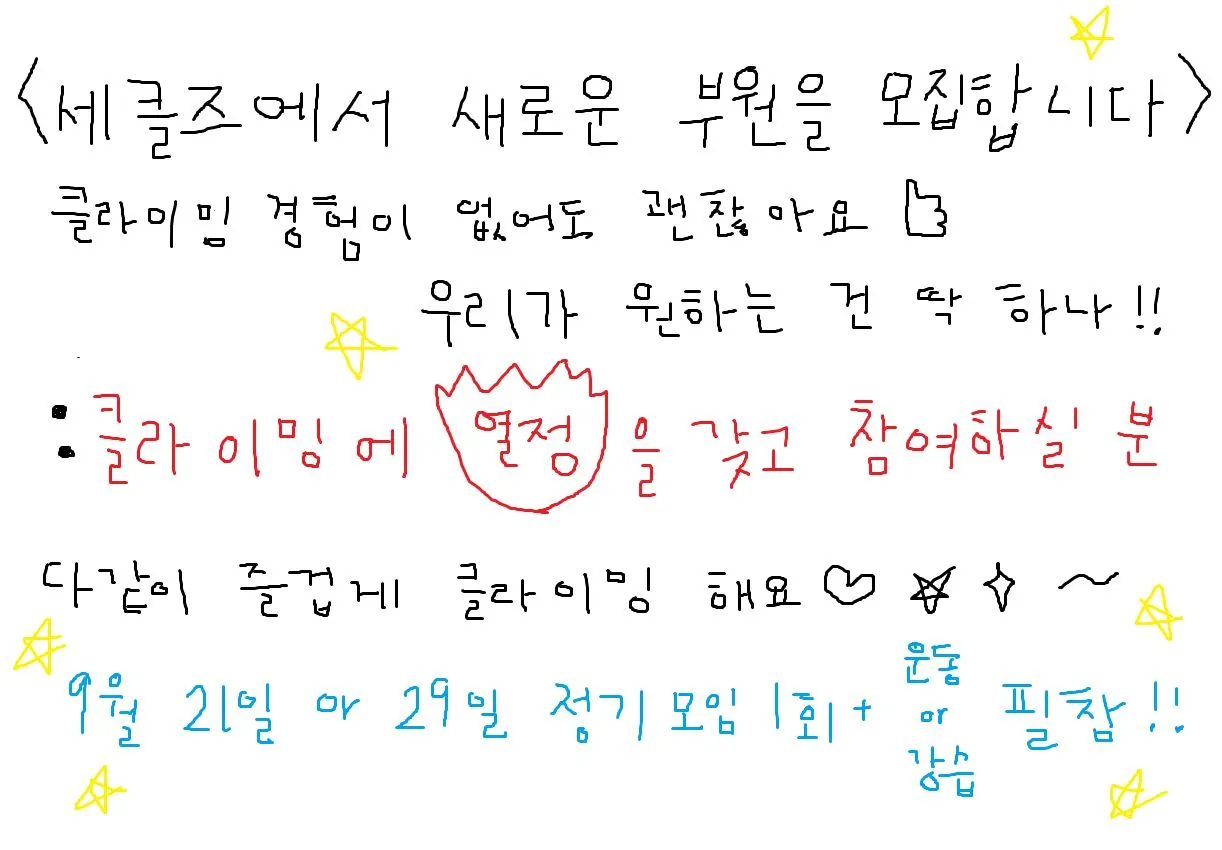 <세클즈에서 새로운 부원을 모집합니다>
클라이밍 경험이 없어도 괜찮아요
우리가 원하는 건 딱 하나!!
: 클라이밍에 열정을 갖고 참여하실 분
다같이 즐겁게 클라이밍 해요♡☆✧~
9월 21일 or 29일 정기모임 1회 + 운동 or 강습 필참!!